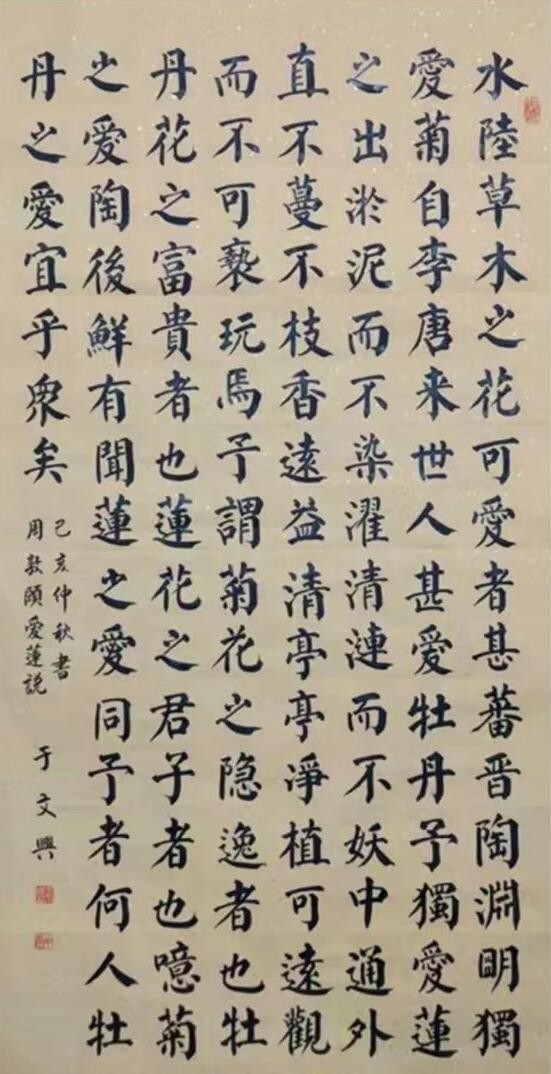 水陸草木之花可愛者甚蕃晋陶淵明獨
愛菊自李唐来世人甚愛牡丹予獨愛蓮
之出淤泥而不染濯清漣而不妖中通外
直不蔓不枝香遠益清亭亭淨植可遠觀
而不可褻玩焉予謂菊花之隐逸者也牡
丹花之富貴者也蓮花之君子者也噫菊
之愛陶後鮮有聞蓮之愛同予者何人牡
丹之愛宜乎眾矣
己亥仲秋書
周敦頤愛蓮説
于文興